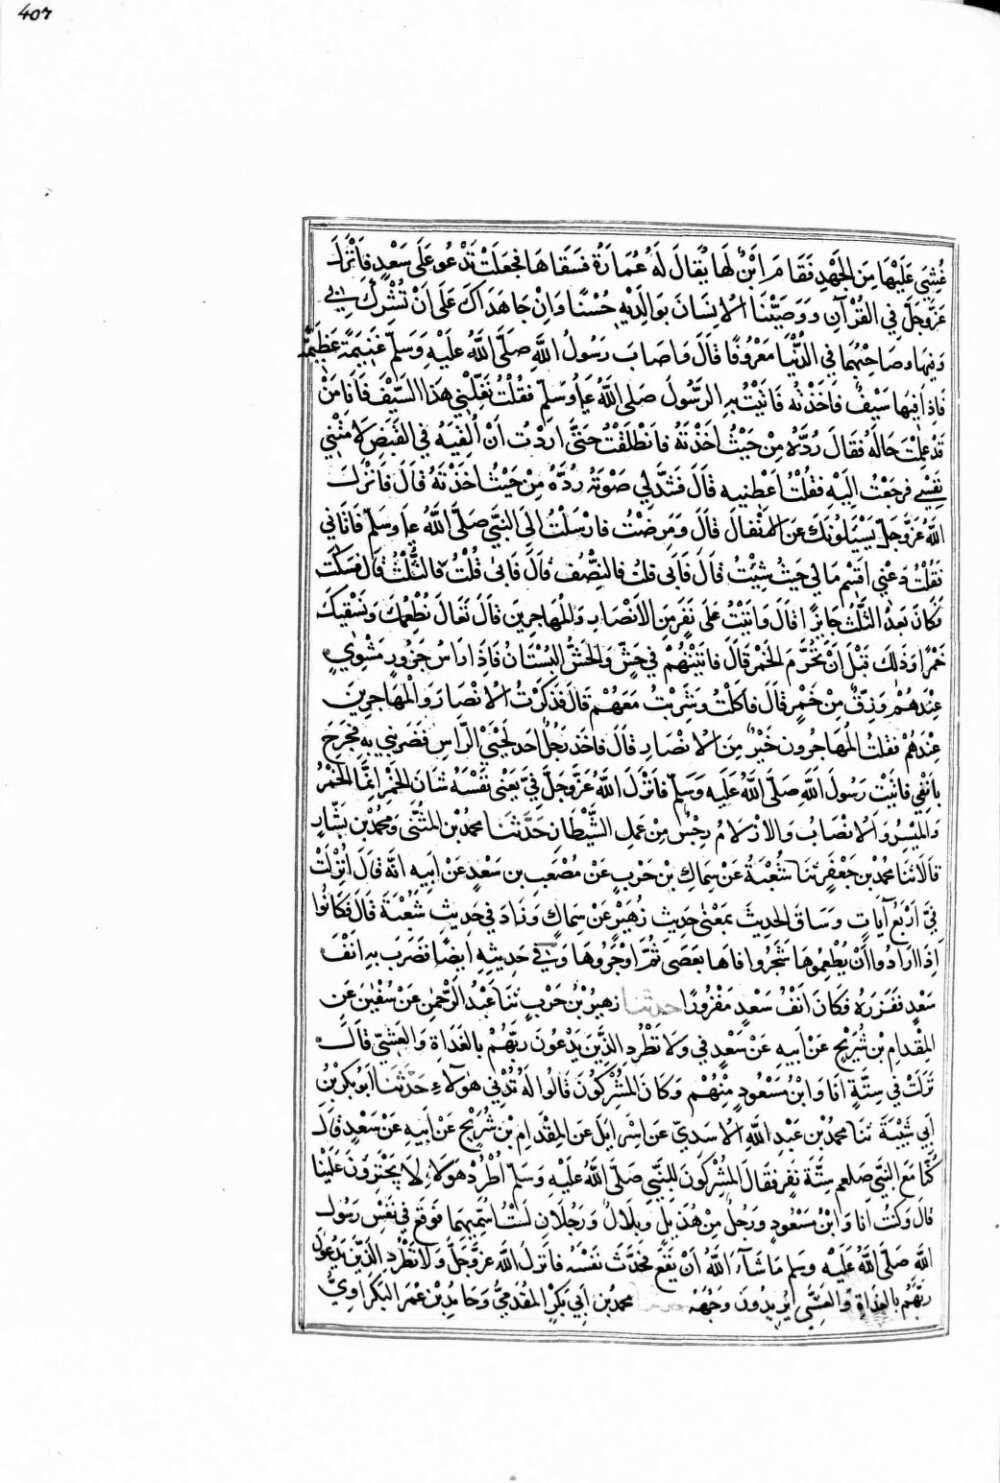 407
غُشِيَ عَلَيْهَا مِنَ الْجَهْدِ فَقَامَ ابْنٌ لَهَا يُقَالُ لَهُ عُمَارَةُ فَسَقَاهَا فَجَعَلَتْ تَدْعُو عَلَى سَعْدٍ فَأَنْزَلَ
عَزَّ وَجَلَّ فِي الْقُرْآنِ وَوَصَّيْنَا الْإِنْسَانَ بِوَالِدَيْهِ حُسْنًا وَإِنْ جَاهَدَاكَ عَلَى أَنْ تُشْرِكَ بِي
وَفِيهَا وَصَاحِبْهُمَا فِي الدُّنْيَا مَعْرُوفًا قَالَ وَأَصَابَ رَسُولُ اللَّهِ صَلَّى اللَّهُ عَلَيْهِ وَسَلَّمَ غَنِيمَةً عَظِيمَةً
فَإِذَا فِيهَا سَيْفٌ فَأَخَذْتُهُ فَأَتَيْتُ بِهِ الرَّسُولَ صَلَّى اللَّهُ عَلَيْهِ وَسَلَّمَ فَقُلْتُ نَفِّلْنِي هَذَا السَّيْفَ فَأَنَا مَنْ
قَدْ عَلِمْتَ حَالَهُ فَقَالَ رُدَّهُ مِنْ حَيْثُ أَخَذْتَهُ فَانْطَلَقْتُ حَتَّى أَرَدْتُ أَنْ أُلْقِيَهُ فِي الْقَبَضِ لَامَتْنِي
نَفْسِي فَرَجَعْتُ إِلَيْهِ فَقُلْتُ أَعْطِنِيهِ قَالَ فَشَدَّ لِي صَوْتَهُ رُدَّهُ مِنْ حَيْثُ أَخَذْتَهُ قَالَ فَأَنْزَلَ
اللَّهُ عَزَّ وَجَلَّ يَسْئَلُونَكَ عَنِ الْأَنْفَالِ قَالَ وَمَرِضْتُ فَأَرْسَلْتُ إِلَى النَّبِيِّ صَلَّى اللَّهُ عَلَيْهِ وَسَلَّمَ فَأَتَانِي
فَقُلْتُ دَعْنِي أَقْسِمْ مَالِي حَيْثُ شِئْتُ قَالَ فَأَبَى قُلْتُ فَالنِّصْفَ قَالَ فَأَبَى قُلْتُ فَالثُّلُثَ قَالَ فَسَكَتَ
فَكَانَ بَعْدُ الثُّلُثُ جَائِزًا قَالَ وَأَتَيْتُ عَلَى نَفَرٍ مِنَ الْأَنْصَارِ وَالْمُهَاجِرِينَ قَالَ تَعَالَ نُطْعِمْكَ وَنَسْقِيكَ
خَمْرًا وَذَلِكَ قَبْلَ أَنْ تُحَرَّمَ الْخَمْرُ قَالَ فَأَتَيْتُهُمْ فِي حَشٍّ وَالْحَشُّ الْبُسْتَانُ فَإِذَا رَأْسُ جَزُورٍ مَشْوِيٌّ
عِنْدَهُمْ وَزِقٌّ مِنْ خَمْرٍ قَالَ فَأَكَلْتُ وَشَرِبْتُ مَعَهُمْ قَالَ فَذَكَرْتُ الْأَنْصَارَ وَالْمُهَاجِرِينَ
عِنْدَهُمْ فَقُلْتُ الْمُهَاجِرُونَ خَيْرٌ مِنَ الْأَنْصَارِ قَالَ فَأَخَذَ رَجُلٌ أَحَدَ لَحْيَيِ الرَّأْسِ فَضَرَبَنِي بِهِ فَجَرَحَ
بِأَنْفِي فَأَتَيْتُ رَسُولَ اللَّهِ صَلَّى اللَّهُ عَلَيْهِ وَسَلَّمَ فَأَنْزَلَ اللَّهُ عَزَّ وَجَلَّ فِيَّ يَعْنِي نَفْسَهُ شَانَ الْخَمْرِ إِنَّمَا الْخَمْرُ
وَالْمَيْسِرُ وَالْأَنْصَابُ وَالْأَزْلَامُ رِجْسٌ مِنْ عَمَلِ الشَّيْطَانِ حَدَّثَنَا مُحَمَّدُ بْنُ الْمُثَنَّى وَمُحَمَّدُ بْنُ بَشَّارٍ
قَالَا ثَنَا مُحَمَّدُ بْنُ جَعْفَرٍ ثَنَا شُعْبَةُ عَنْ سِمَاكِ بْنِ حَرْبٍ عَنْ مُصْعَبِ بْنِ سَعْدٍ عَنْ أَبِيهِ أَنَّهُ قَالَ أُنْزِلَتْ
فِيَّ أَرْبَعُ آيَاتٍ وَسَاقَ الْحَدِيثَ بِمَعْنَى حَدِيثِ زُهَيْرٍ عَنْ سِمَاكٍ وَزَادَ فِي حَدِيثِ شُعْبَةَ قَالَ فَكَانُوا
إِذَا أَرَادُوا أَنْ يُطْعِمُوهَا شَجَرُوا فَاهَا بِعَصًى ثُمَّ أَوْجَرُوهَا وَفِي حَدِيثِهِ أَيْضًا فَضَرَبَ بِهِ أَنْفَ
سَعْدٍ فَفَزَرَهُ فَكَانَ أَنْفُ سَعْدٍ مَفْزُورًا حدثنا زُهَيْرُ بْنُ حَرْبٍ ثَنَا عَبْدُ الرَّحْمٰنِ عَنْ سُفْيٰنَ عَنِ
الْمِقْدَامِ بْنِ شُرَيْحٍ عَنْ أَبِيهِ عَنْ سَعْدٍ فِيَّ وَلَا تَطْرُدِ الَّذِينَ يَدْعُونَ رَبَّهُمْ بِالْغَدَاةِ وَالْعَشِيِّ قَالَ
نَزَلَتْ فِي سِتَّةٍ أَنَا وَابْنُ مَسْعُودٍ مِنْهُمْ وَكَانَ الْمُشْرِكُونَ قَالُوا لَهُ تُدْنِي هَؤُلَاءِ حَدَّثَنَا أَبُو بَكْرِ بْنُ
أَبِي شَيْبَةَ ثَنَا مُحَمَّدُ بْنُ عَبْدِ اللَّهِ الْأَسَدِيُّ عَنْ إِسْرَائِيلَ عَنِ الْمِقْدَامِ بْنِ شُرَيْحٍ عَنْ أَبِيهِ عَنْ سَعْدٍ قَالَ
كُنَّا مَعَ النَّبِيِّ صلعم سِتَّةَ نَفَرٍ فَقَالَ الْمُشْرِكُونَ لِلنَّبِيِّ صَلَّى اللَّهُ عَلَيْهِ وَسَلَّمَ اطْرُدْ هَؤُلَاءِ لَا يَجْتَرِؤُنَ عَلَيْنَا
قَالَ وَكُنْتُ أَنَا وَابْنُ مَسْعُودٍ وَرَجُلٌ مِنْ هُذَيْلٍ وَبِلَالٌ وَرَجُلَانِ لَسْتُ أُسَمِّيهِمَا فَوَقَعَ فِي نَفْسِ رَسُولِ
اللَّهِ صَلَّى اللَّهُ عَلَيْهِ وَسَلَّمَ مَا شَآءَ اللَّهُ أَنْ يَقَعَ فَحَدَّثَ نَفْسَهُ فَأَنْزَلَ اللَّهُ عَزَّ وَجَلَّ وَلَا تَطْرُدِ الَّذِينَ يَدْعُونَ
رَبَّهُمْ بِالْغَدَاةِ وَالْعَشِيِّ يُرِيدُونَ وَجْهَهُ مُحَمَّدُ بْنُ أَبِي بَكْرٍ الْمُقَدَّمِيُّ وَحَامِدُ بْنُ عُمَرَ الْبَكْرَاوِيُّ